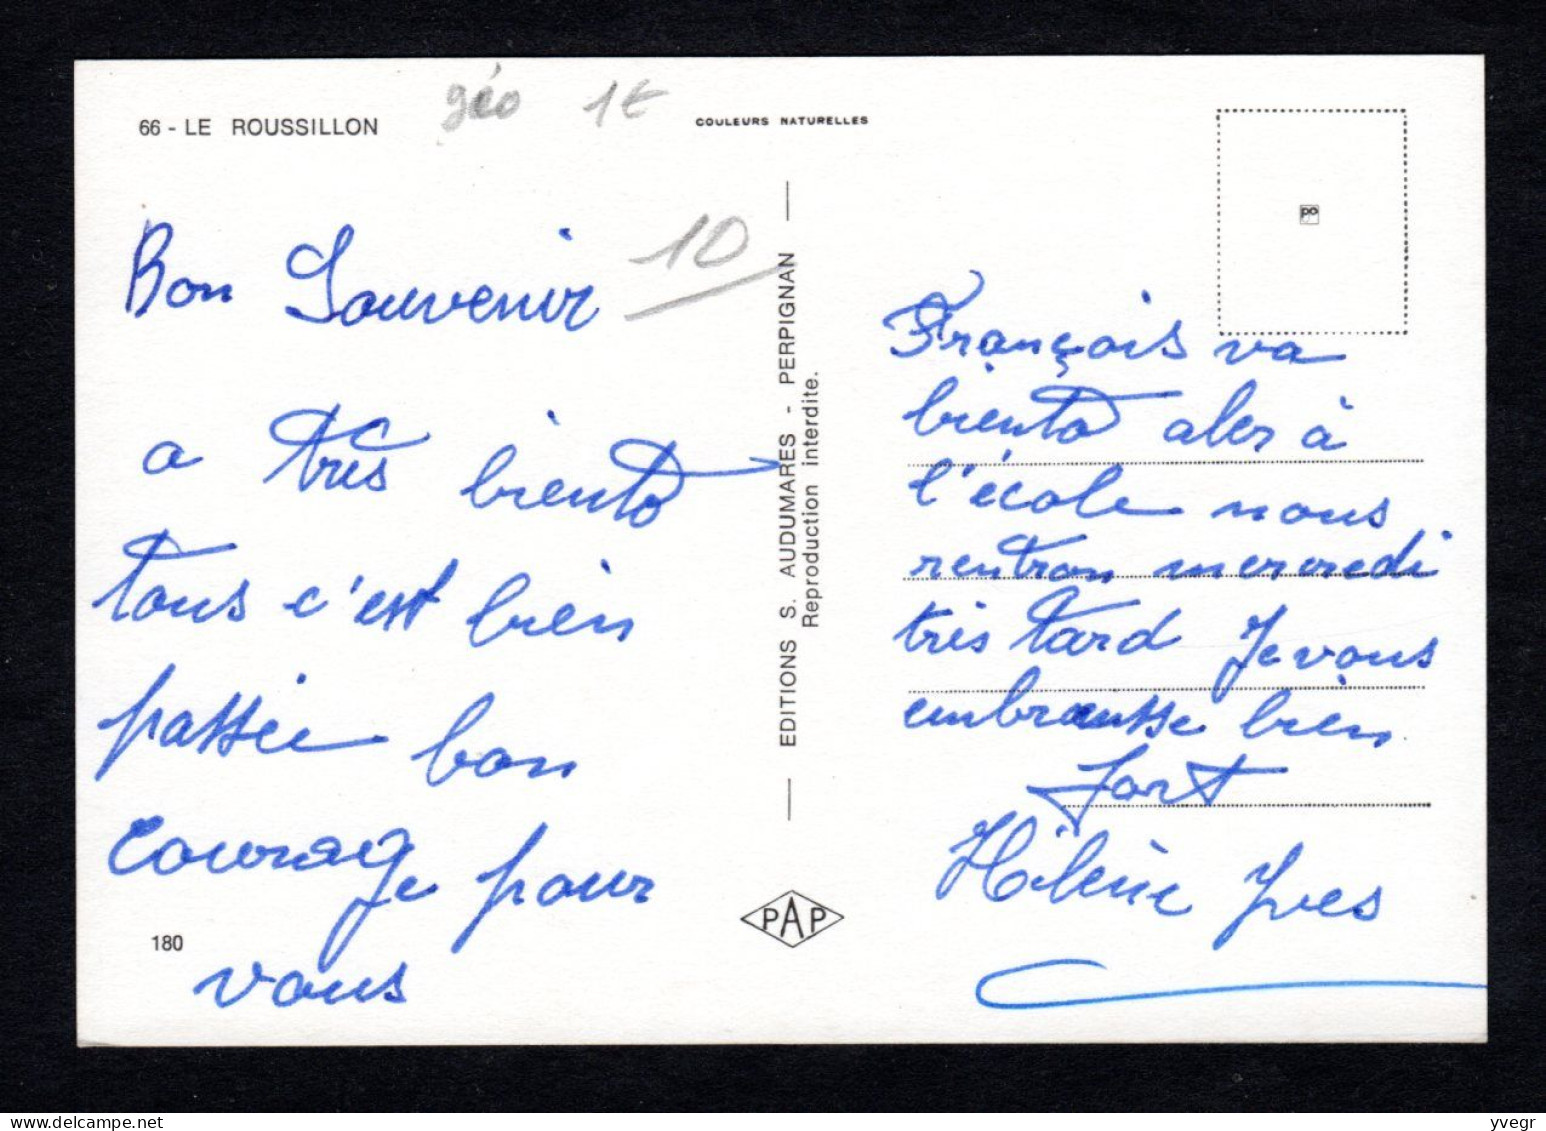 66 - LE ROUSSILLON
géo 1€
COULEURS NATURELLES
po
Bon Souvenir
10
a très biento
tous c'est bien
passée bon
courage pour
vous
180
EDITIONS S. AUDUMARES - PERPIGNAN
Reproduction interdite.
PAP
François va
biento aler à
l'école nous
rentron mercredi
très tard Je vous
embrausse bien
fort
Hélène Yves
yvegr